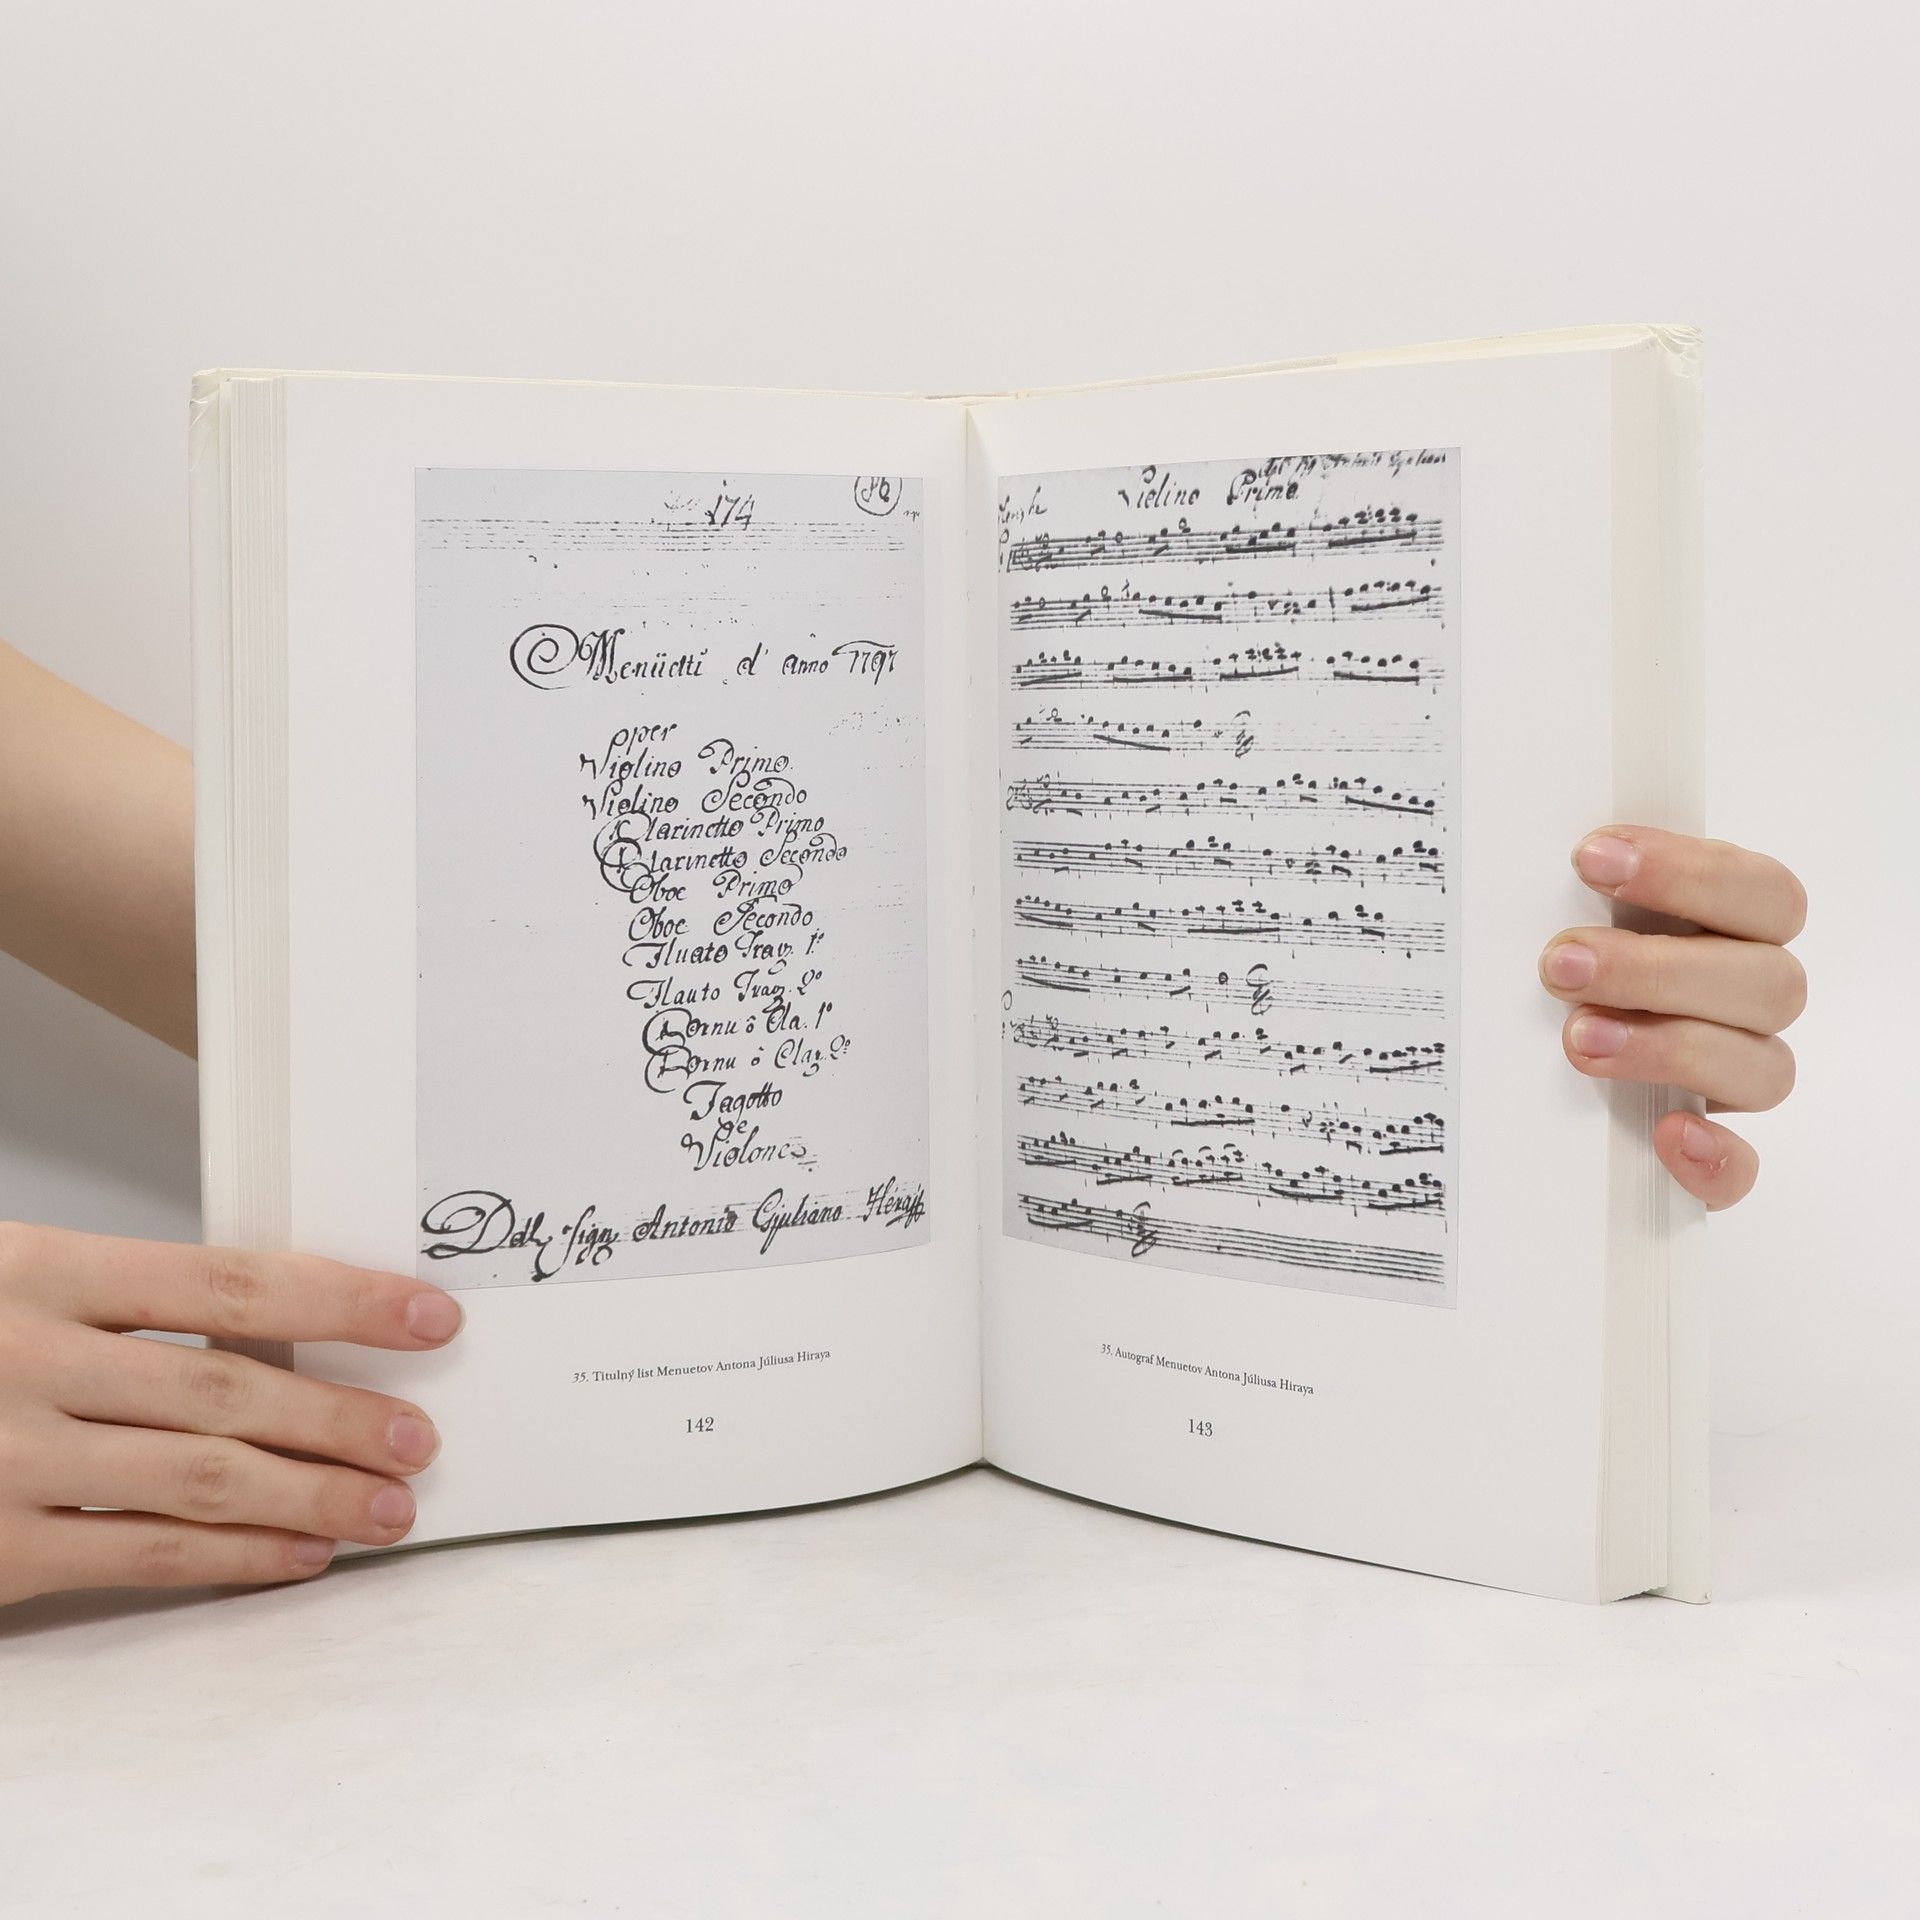 174
Menüetti d' anno 1797
per
Violino Primo.
Violino Secondo
Clarinetto Primo
Clarinetto Secondo
Oboe Primo
Oboe Secondo
Fluato Trav. 1º
Flauto Trav. 2º
Cornu ô Cla. 1º
Cornu ô Clar. 2º
Fagotto
e
Violone
Dell Sign Antonio Gjuliano
35. Titulný list Menuetov Antona Júliusa Hiraya
142
Violino Primo
35. Autograf Menuetov Antona Júliusa Hiraya
143